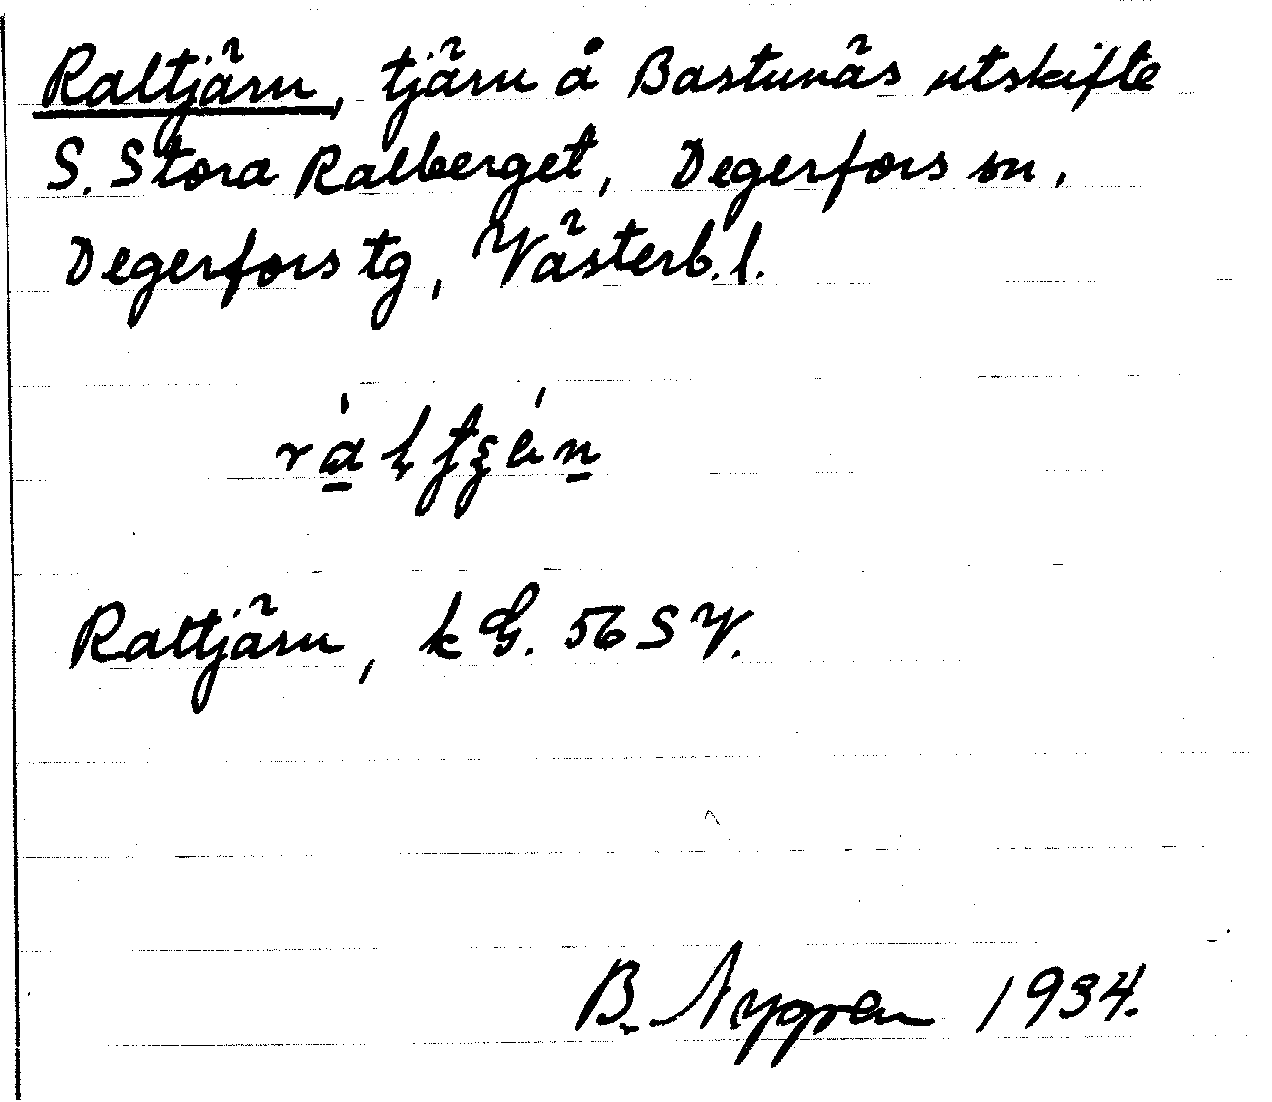 Raltjärn, tjärn å Bastunäs utskifte
S. Stora Ralberget, Degerfors sn,
Degerfors tg, Västerb. l.
Raltjärn, k G. 56 SV.
B. Nygren 1934.